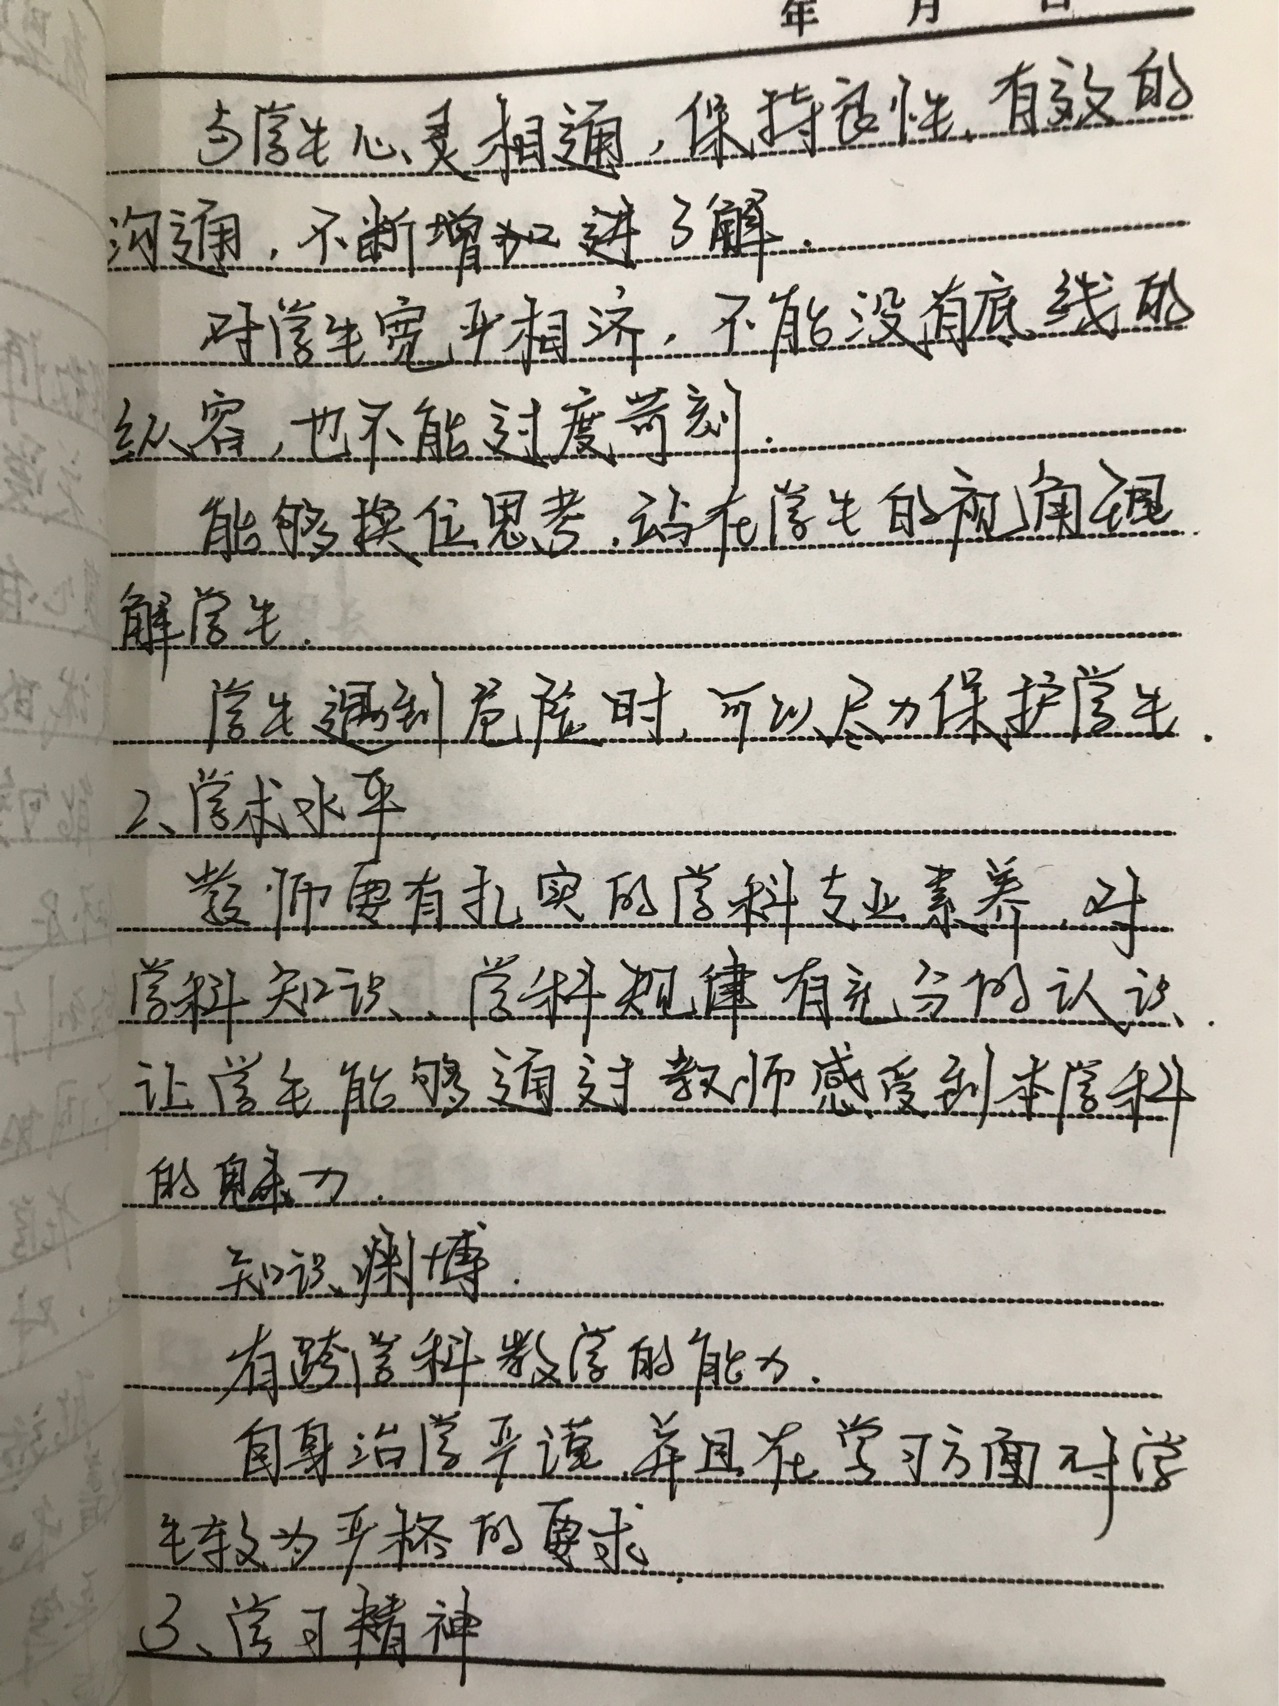 年 月 日
与学生心灵相通,保持良性、有效的
沟通,不断增加进了解.
对学生宽严相济,不能没有底线的
纵容,也不能过度苛刻.
能够换位思考,站在学生的视角理
解学生.
学生遇到危险时,可以尽力保护学生.
2、学术水平
教师要有扎实的学科专业素养,对
学科知识、学科规律有充分的认识.
让学生能够通过教师感受到本学科
的魅力.
知识渊博.
有跨学科教学的能力.
自身治学严谨,并且在学习方面对学
生较为严格的要求.
3、学习精神